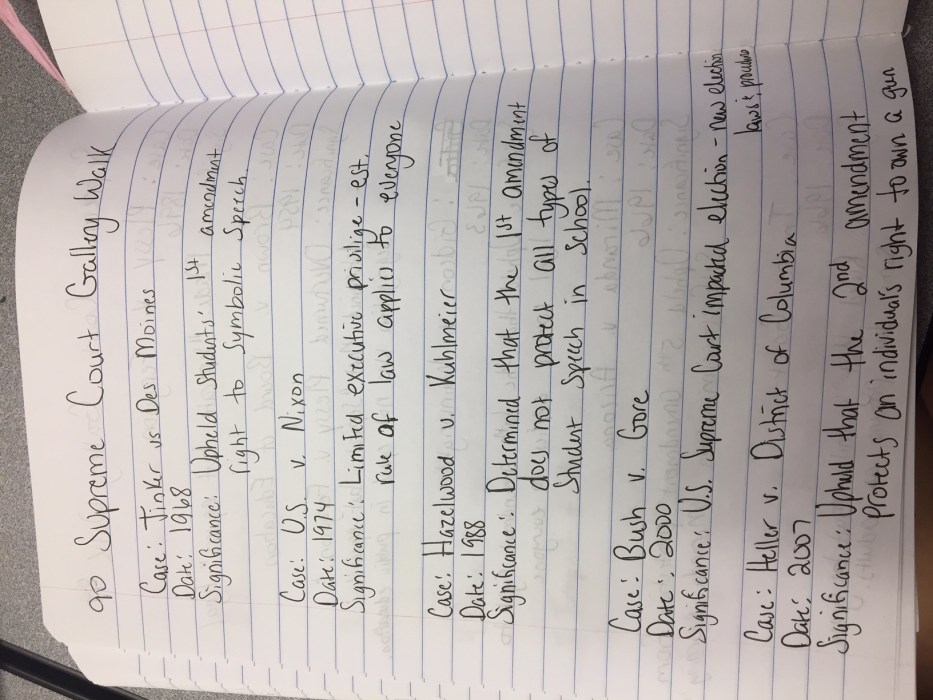 90 Supreme Court Gallery Walk
Case: Tinker vs Des Moines
Date: 1968
Significance: Upheld Students' 1st amendment
right to Symbolic Speech.
Case: U.S. v. Nixon
Date: 1974
Significance: Limited executive privilige - est.
rule of law applies to everyone
Case: Hazelwood v. Kuhlmeier
Date: 1988
Significance: Determined that the 1st amendment
does not protect all types of
Student Speech in School.
Case: Bush v. Gore
Date: 2000
Significance: U.S. Supreme Court impacted election - new election
laws &
Case: Heller v. District of Columbia
Date: 2007
Significance: Upheld that the 2nd amendment
protects an individual's right to own a gun